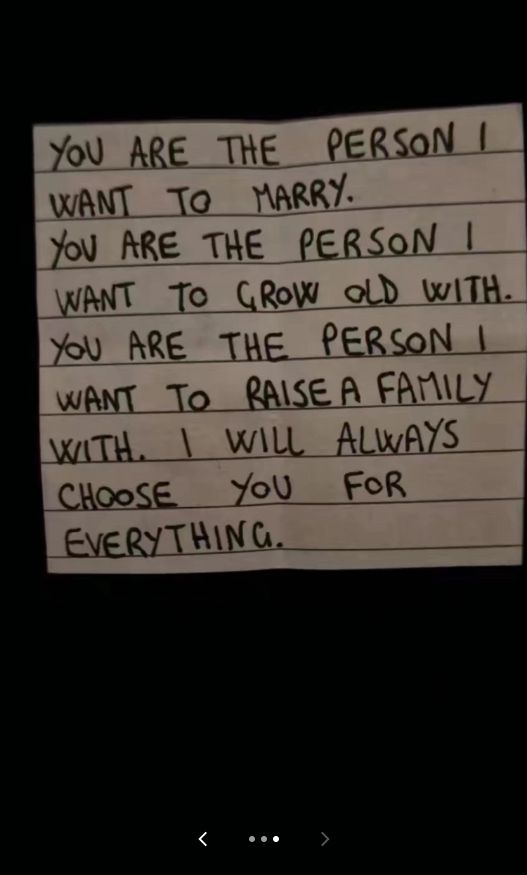 YOU ARE THE PERSON I
WANT TO MARRY.
YOU ARE THE PERSON I
WANT TO GROW OLD WITH.
YOU ARE THE PERSON I
WANT TO RAISE A FAMILY
WITH. I WILL ALWAYS
CHOOSE YOU FOR
EVERYTHING.